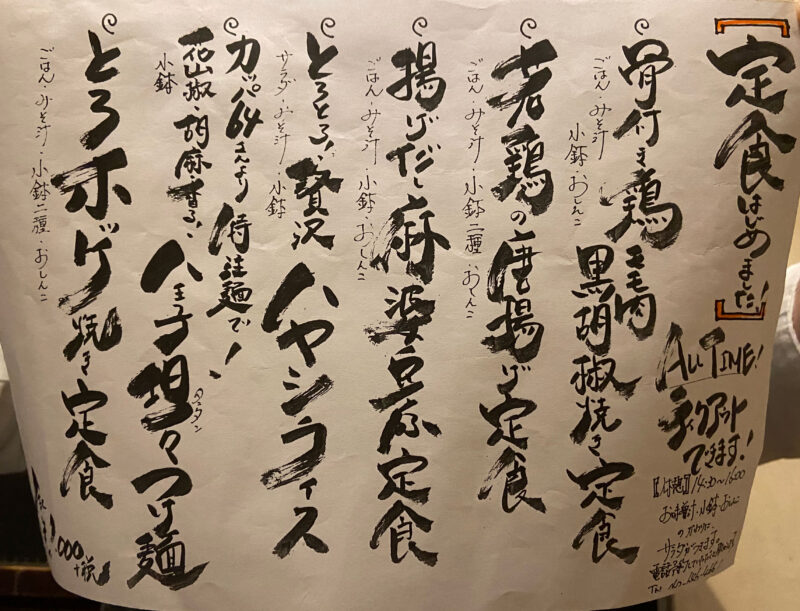 [定食はじめました!]
骨付き鶏モモ肉黒胡椒焼き定食
ごはん・みそ汁・小鉢・おしんこ
若鶏の唐揚げ定食
ごはん・みそ汁・小鉢二種・おしんこ
揚げだし麻婆豆腐定食
ごはん・みそ汁・小鉢・おしんこ
とろとろ!贅沢ハヤシライス
サラダ・みそ汁・小鉢
カッパ64さんより特注麺で!
花山椒・胡麻香る!八王子坦々つけ麺
タンタン
小鉢
とろホッケ焼き定食
ごはん・みそ汁・小鉢二種・おしんこ
ALL TIME!
テイクアウト
できます!
お味噌汁・小鉢・おしんこ
のかわりに
サラダがつきます。
,000
+税